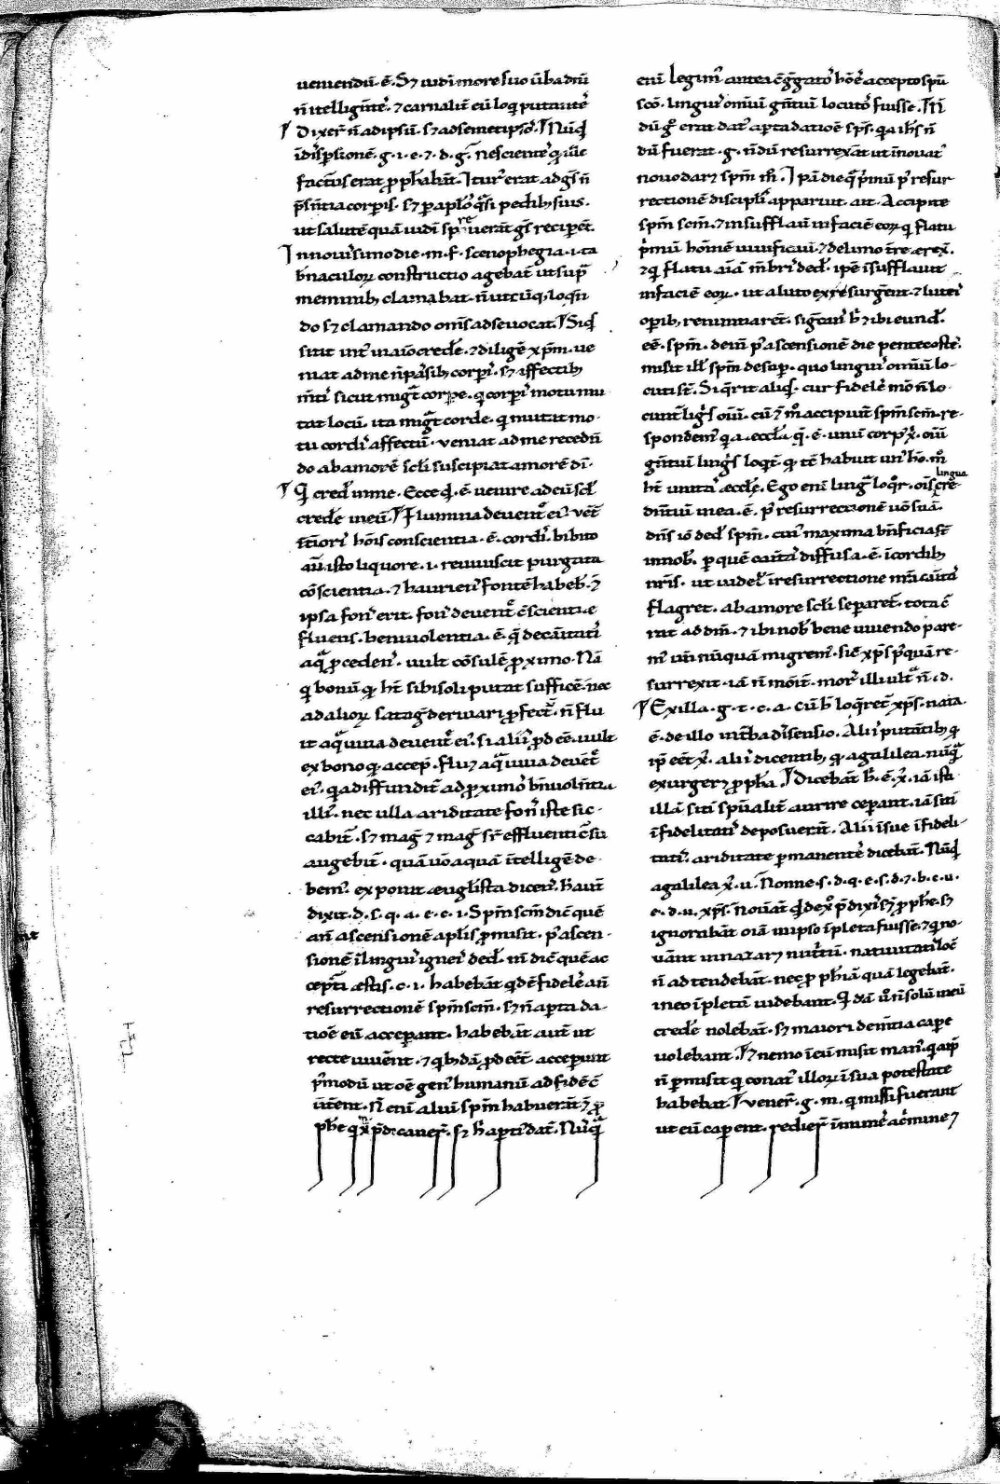 ueniendũ ẽ. Sꝫ iudi more suo ũba dñi
ñ itelligẽtˀ. ⁊ carnalit̃ eũ loq̃ putantˀ
Dixer̃ ñ ad ipsũ. sꝫ ad semetipsoˢ. Nũq̃
ĩ dispsionẽ .g. i. e. ⁊ .d. g. Nescientˀ q̃
factus erat ꝓphabãt. Itur erat ad gs̃ ñ
p̃sñtia corporis. sꝫ ꝑ aplos q̃si pedibꝫ suis.
ut salutẽ quã iudi spreuerãt gs̃ reciperẽt.
In nouissimo die .m. f. scenophegia .i. ta
bnaculoꝝ constructio agebat̃ ut sup̃
meminibꝫ clamabat. ñ utcũqꝫ loq̃n
do sꝫ clamando om̃s ad se uocat. Siq̃
sitit int̃ uiam credẽ. ⁊ diligẽ xp̃m. ue
niat ad me ñ passibꝫ corp̃i. sꝫ affectibꝫ
m̃ti sicut mig̃t corpe. q̃ corp̃i motu mu
tat locũ. ita mig̃t corde. q̃ mutat mo
tu cordˀ affectũ. ueniat ad me recedñ
do ab amorẽ sc̃li suscipiat amorẽ di.
Q̃ cred̃ in me. Ecce q̃ ẽ uenire ad eũ sc̃l
credẽ in eũ. Flumina de uent̃ eiˀ. uẽt̃
ĩtioriˢ hõis conscientia ẽ. cordˀ. bibito
aũ isto liquore .i. reuiuiscit purgata
cõscientia. ⁊ hauriens fontẽ habeb̃. ⁊
ipsa fons erit. fons de uent̃ cõscientie
fluens. beniuolentia ẽ. q̃ de caritatˀ
aq̃ ꝓcedens. uult cõsulẽ ꝓximo. Nã
q̃ bonũ q̃ ht̃ sibi soli putat sufficẽ. nec
ad alioꝝ satag̃ deriuari ꝓfect̃. ñ flu
it aq̃ uiua de uent̃ eiˀ. si aliis ꝓdeẽ. uult
ex bono q̃ accep̃. fluꝫ aq̃ uiua de uent̃
eiˀ. q̃ a diffundit̃ ad ꝓximos bñiuolntia
illiˀ. nec ulla ariditate fons iste sic
cabit̃. sꝫ mag̃ ⁊ mag̃ sr̃ effluenti
augebit̃. quã uo aquã ĩtelligẽ de
bemˀ. exponit euglista dicens. h aut̃
dixit .d. s. q. a. e. c. i. Spm̃ scm̃ dic̃ quẽ
añ ascensionẽ aplis ꝓmisit. p̃ ascen
sionẽ ĩ linguis igneis ded̃. uñ dic̃ quẽ ac
cepti estis .c. i. habebãt q̃dẽ fidelˀ añ
resurrectionẽ spm̃ scm̃. sꝫ ñ apta da
tiõe eũ acceperant. habebãt aut̃ ut
recte uiuerẽt. ⁊ q̃bꝫdã ꝓdeẽt̃ acceperunt
p̃modũ ut oẽ genˀ humanũ ad fidẽ c̃
ũtent. Ñ eni aliũ spm̃ habuerũt ⁊ ꝓ
phe q̃ xp̃m p̃dicauer̃. sꝫ h̃ aperti dat̃. Nũq̃
eni legimˀ antea c̃g̃gatos hões accepto spũ
scõ. linguis omiũ g̃ntiũ locutos fuisse. Ñ
dũ g̃ erat datˀ apta datiõe sps̃. q̃a ihs̃ ñ
dũ fuerat .g. ñdũ resurrexãt ut ĩnouat̃
nouo daret̃ spm̃. Ipã dieq̃ p̃mũ p̃ resur
rectionẽ discipliˢ apparuit. ait. Accipite
spm̃ scm̃. ⁊ insufflauit in faciẽ eoꝝ. q̃ flatu
p̃mũ hominẽ uiuificauit. ⁊ de limo t̃re erex̃.
⁊ q̃ flatu aĩã m̃bris ded̃. ipse ĩsufflauit
in faciẽ eoꝝ. ut a luto exresurgerẽt ⁊ luteis
opibꝫ renuntiarẽt. sig̃cans h̃ ibi eund̃
eẽ. spm̃. deinˀ p̃ ascensionẽ die pentecostẽ.
misit ill̃ spm̃ desup̃. quo linguis omiũ lo
cuti st̃. Si q̃rit aliq̃s. cur fidelẽ mõ ñ lo
cunt̃ ligˢ oiũ. cũ ⁊ m̃ accipiunt spm̃ scm̃. re
spondemˀ q̃a eccla q̃ ẽ unũ corpˢ x̃. oiũ
g̃ntiũ lingˢ loq̃t̃. q̃ tẽ habuit unˀ hõ. m̃
ht̃ unitas eccle. Ego eni lingˢ loq̃r. ois̃ cre
lingua
dintiũ mea ẽ. p̃ resurrectionẽ uo suã.
dñs iõ ded̃ spm̃. cuiˀ maxima bñficia st̃
in nobˢ. ꝑ quẽ caritas diffusa ẽ ĩ cordibꝫ
nr̃is. ut uidelꝫ ĩ resurrectione nr̃a caritas
flagret. ab amore sc̃li separet̃. tota c̃
rat ad dm̃. ⁊ ibi nobˢ bene uiuendo pare
mˀ uñ nũquã migremˀ. sic̃ xp̃s p̃quã re
surrexit. iã ñ morit̃. mors illi ult̃ ñ .d.
Ex illa .g. t. c. a. cũ h̃ loq̃ret̃ xp̃s. nata
ẽ. de illo int̃ ba dissensio. Aliis putãtibꝫ q̃
ip̃ eẽt x̃. aliis dicentibꝫ. q̃ a galilea nũq̃
exurgeret ꝓpha. Dicebãt h̃ ẽ. x̃. iã ista
illã siti spũalit̃ aurire ceperant. iã siti
ĩfidelitatis deposuerũt. Alii isue ĩ fideli
tatis. ariditate permanentes dicebãt. Nũq̃
a galilea x̃. u. Nonne .s. d. q. e. s. d. ⁊ .b. c. u.
e. d. u. xp̃s. Nouãt q̃ de x̃ p̃dixissꝫ ꝓphe. sꝫ
ignorabãt oĩã in ipso ĩpleta fuisse. ⁊ q̃ no
uãnt in nazareꝫ nutritũ. natiuitatis locũ
ñ adtendebãt. nec ꝓphiã quã legebãt.
in eo ĩpletũ uidebant. Q̃ dã ũ ñ solũ in eũ
credẽ nolebãt. sꝫ maiori demẽtia capere
uolebant. Sꝫ nemo ĩ eũ misit manˢ. q̃a ip̃
ñ permisit q̃ conatˢ illoꝝ ĩ sua potestate
habebat. Uener̃ .g. m. q̃ missi fuerant
ut eũ caperent. redier̃ ĩmunes a crimine ⁊